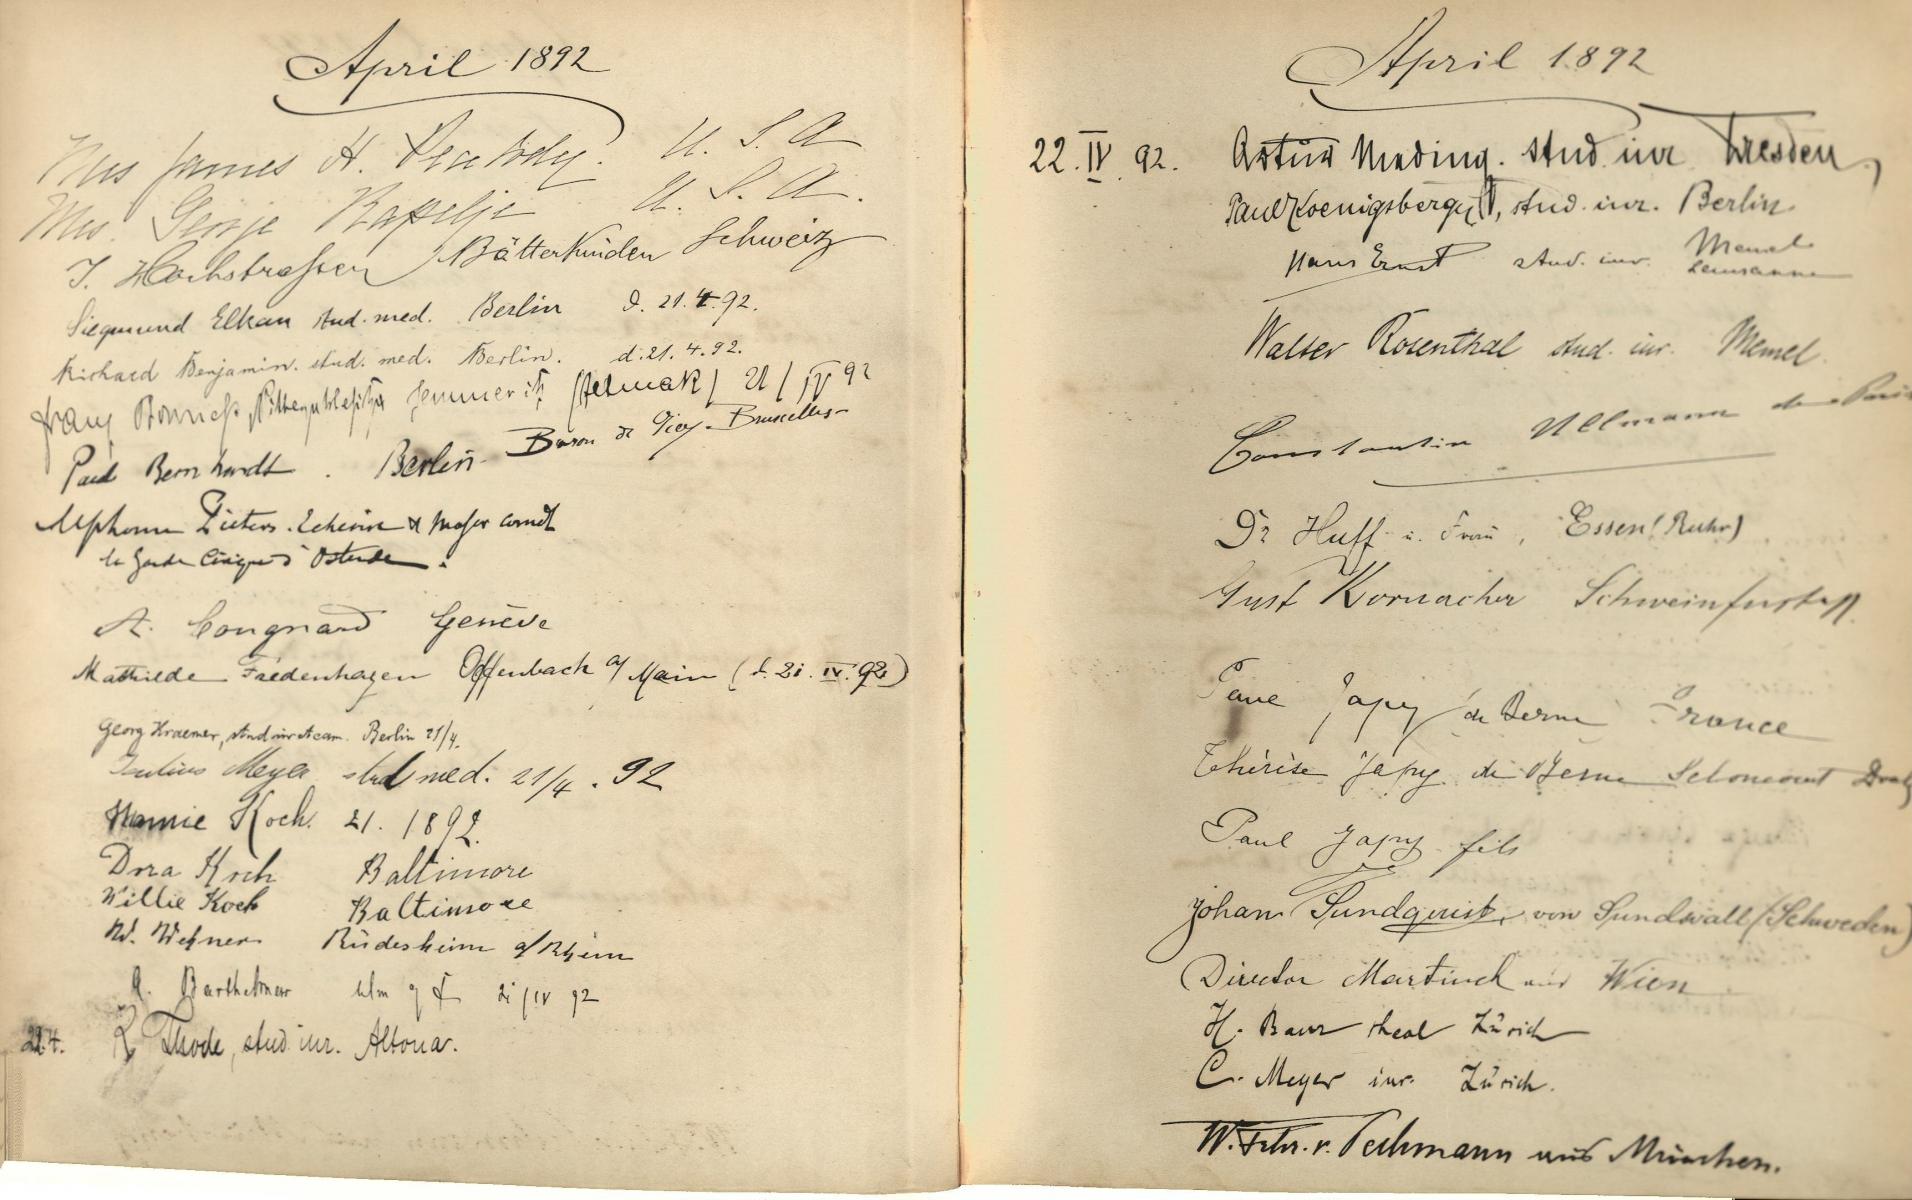 April 1892
Mrs James H. Peabody. U. S. A
Mrs. George Rapelje U. S. A.
J. Hochstrasser Bätterkinden Schweiz
Siegmund Elkan stud. med. Berlin d. 21.4.92.
Richard Benjamin. stud. med. Berlin. d. 21.4.92.
Franz 21/IV 92
Paul Bernhardt. Berlin
Baron de Bruxelles
Alphonse Pieters. Echevin & Major Comdt
la Garde Civique d'Ostende.
A. Congnard Genève
Mathilde Fredenhagen Offenbach a/Main (d. 21. IV. 92)
Georg Kraemer, stud. iur. et cam. Berlin 21/4.
Julius Meyer stud med. 21/4. 92
Mamie Koch. 21. 1892.
Dora Koch Baltimore
Willie Koch Baltimore
W. Wehner Rüdesheim a/Rhein
A. Bartholomew 21/IV 92
22.4. R Thode, stud. iur. Altona.
April 1892
22. IV. 92. Artur Meding. stud. iur Dresden,
Paul Koenigsberger, stud. iur. Berlin
Hans Ernst stud. iur. Memel
Lausanne
Walter Rosenthal stud. iur. Memel.
Constantin Ullmann de Paris
Dr Huff u. Frau, Essen (Ruhr)
Gust Kornacher Schweinfurt a/M.
Japy de Berne France
Thérèse Japy de Berne Seloncourt Doubs
Paul Japy fils
Johan Sundqvist, von Sundswall (Schweden)
Director Martinek aus Wien
H. Baur theol Zürich
C. Meyer iur. Zürich.
W. Frhr. v. Pechmann aus München.